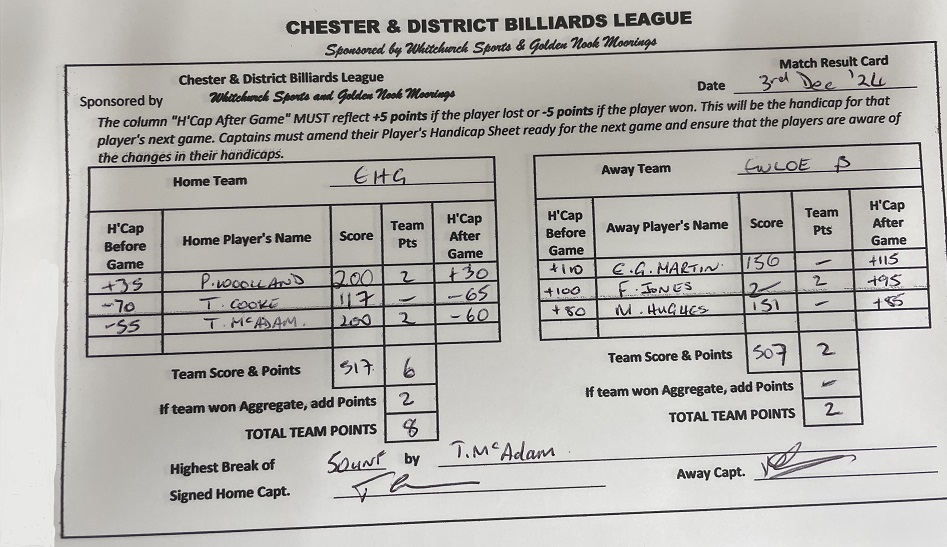 CHESTER & DISTRICT BILLIARDS LEAGUE
Sponsored by Whitchurch Sports & Golden Nook Moorings
Match Result Card
Chester & District Billiards League
Date 3rd Dec '24
Sponsored by Whitchurch Sports and Golden Nook Moorings
The column "H'Cap After Game" MUST reflect +5 points if the player lost or -5 points if the player won. This will be the handicap for that
player's next game. Captains must amend their Player's Handicap Sheet ready for the next game and ensure that the players are aware of
the changes in their handicaps.
Home Team EHG
H'Cap Before Game Home Player's Name Score Team Pts H'Cap After Game
+35 P. WOOLLAND 200 2 +30
-70 T. COOKE 117 - -65
-55 T. McADAM. 200 2 -60
Team Score & Points 517 6
If team won Aggregate, add Points 2
TOTAL TEAM POINTS 8
Away Team EWLOE B
H'Cap Before Game Away Player's Name Score Team Pts H'Cap After Game
+110 E.G. MARTIN. 156 - +115
+100 F. JONES 2 +95
+80 M. HUGHES 151 - +85
Team Score & Points 507 2
If team won Aggregate, add Points -
TOTAL TEAM POINTS 2
Highest Break of by T. McAdam
Signed Home Capt.
Away Capt.